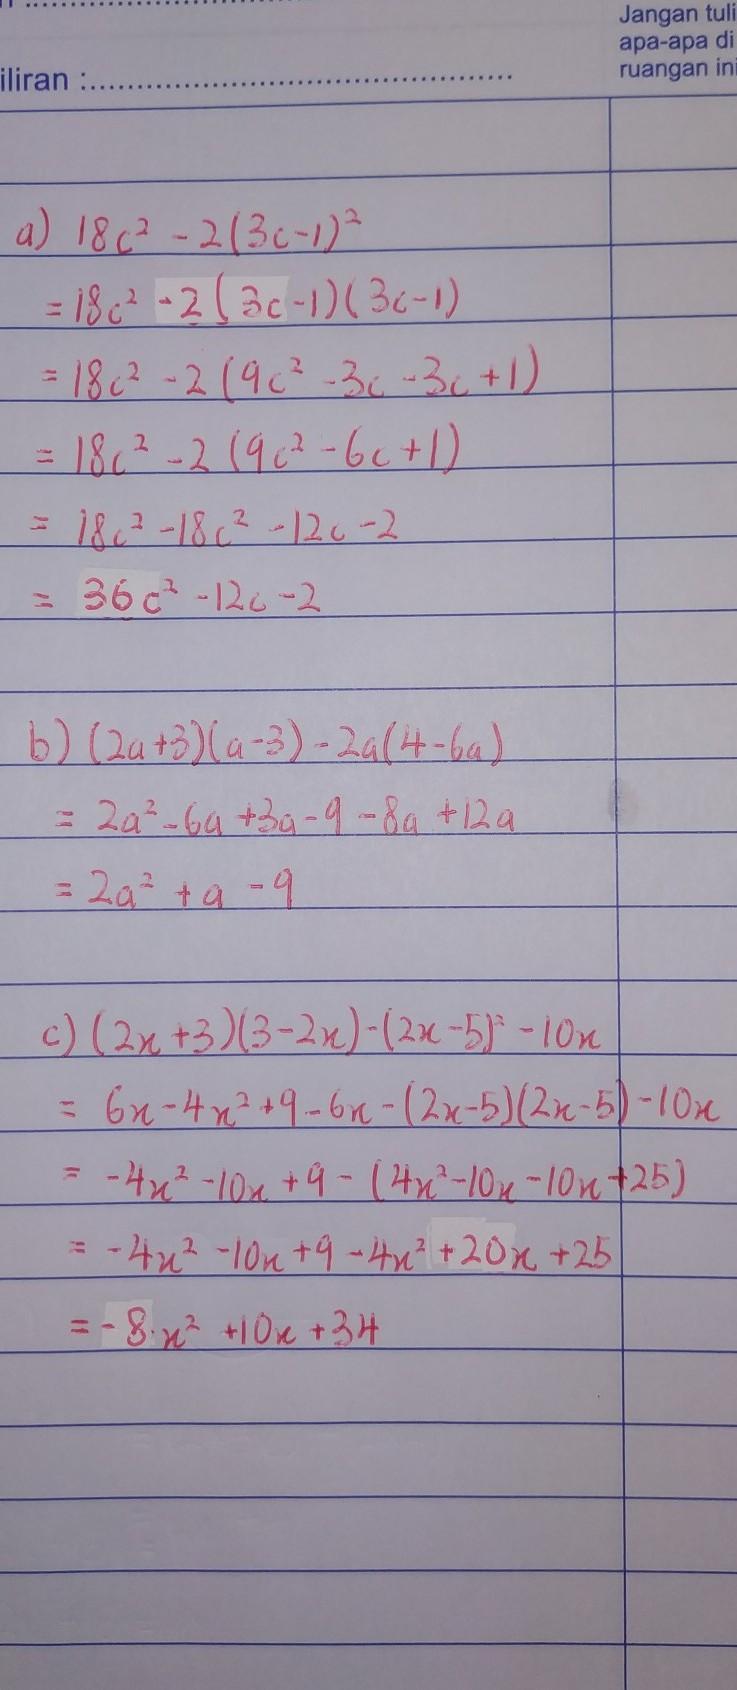 iliran :..................................................
Jangan tuli
apa-apa di
ruangan ini
a) 18c² - 2(3c-1)²
= 18c² - 2(3c-1)(3c-1)
= 18c² - 2(9c² -3c -3c +1)
= 18c² - 2(9c² -6c +1)
= 18c² -18c² -12c -2
= 36c² -12c -2
b) (2a+3)(a-3) - 2a(4-6a)
= 2a² -6a +3a -9 -8a +12a
= 2a² + a - 9
c) (2x+3)(3-2x) -(2x-5)² -10x
= 6x -4x² +9 -6x -(2x-5)(2x-5) -10x
= -4x² -10x +9 - (4x²-10x-10x+25)
= -4x² -10x +9 -4x² +20x +25
= -8x² +10x +34